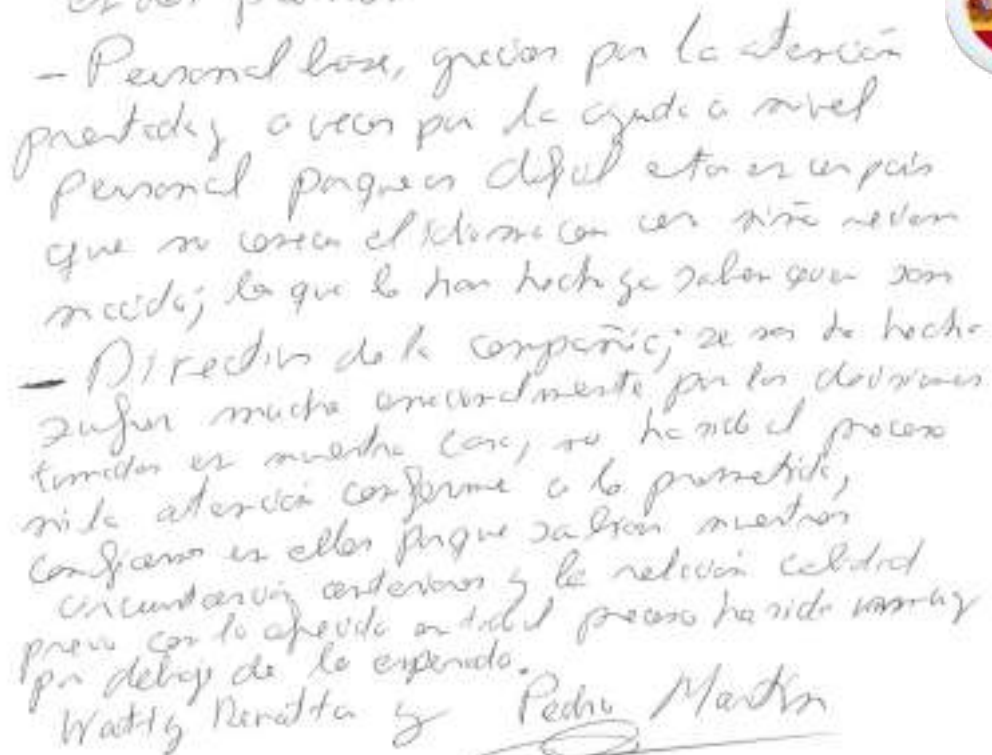 - Personal base, gracias por la atención
prestada y a veces por la ayuda a nivel
personal porque es difícil estar en un país
que no conoces el idioma con una niña recien
nacida; los que lo han hecho ya saben quien son
- Directivos de la compañía; se nos ha hecho
sufrir mucho emocionalmente por las decisiones
tomadas en nuestro caso, no ha sido el proceso
ni la atención conforme a lo prometido,
confiamos en ellos porque sabían nuestras
circunstancias anteriores y la relación calidad
precio con lo ofrecido en todo el proceso ha sido muy
por debajo de lo esperado.
y Pedro Martin